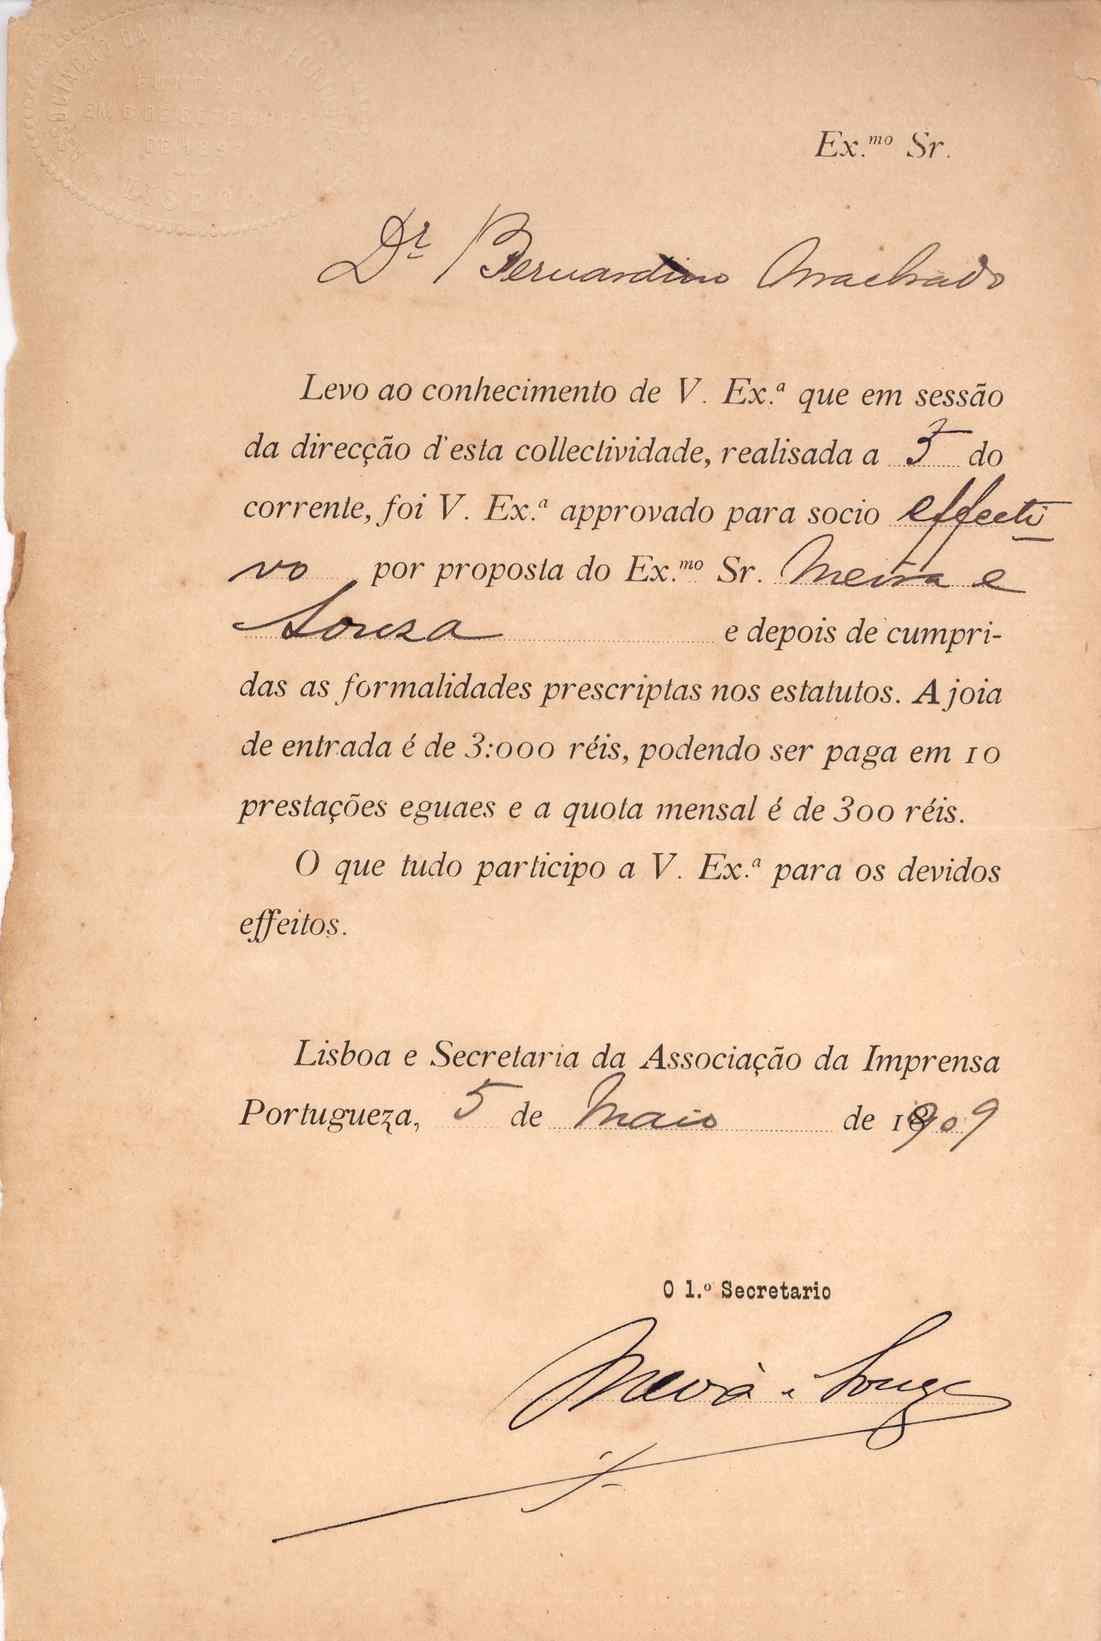 EM 6 DE
Ex.mo Sr.
Dr Bernardino Machado
Levo ao conhecimento de V. Ex.a que em sessão
da direcção d'esta collectividade, realisada a 5 do
corrente, foi V. Ex.a approvado para socio effecti
vo por proposta do Ex.mo Sr. Meira e
Souza e depois de cumpri-
das as formalidades prescriptas nos estatutos. A joia
de entrada é de 3:000 réis, podendo ser paga em 10
prestações eguaes e a quota mensal é de 300 réis.
O que tudo participo a V. Ex.a para os devidos
effeitos.
Lisboa e Secretaria da Associação da Imprensa
Portugueza, 5 de Maio de 1909
O 1.º Secretario
Meira e Souza